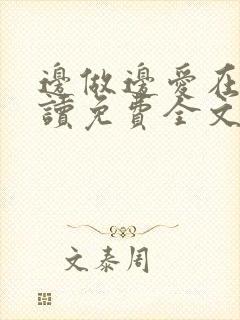 邊做邊愛在
讀免費全文
文泰周